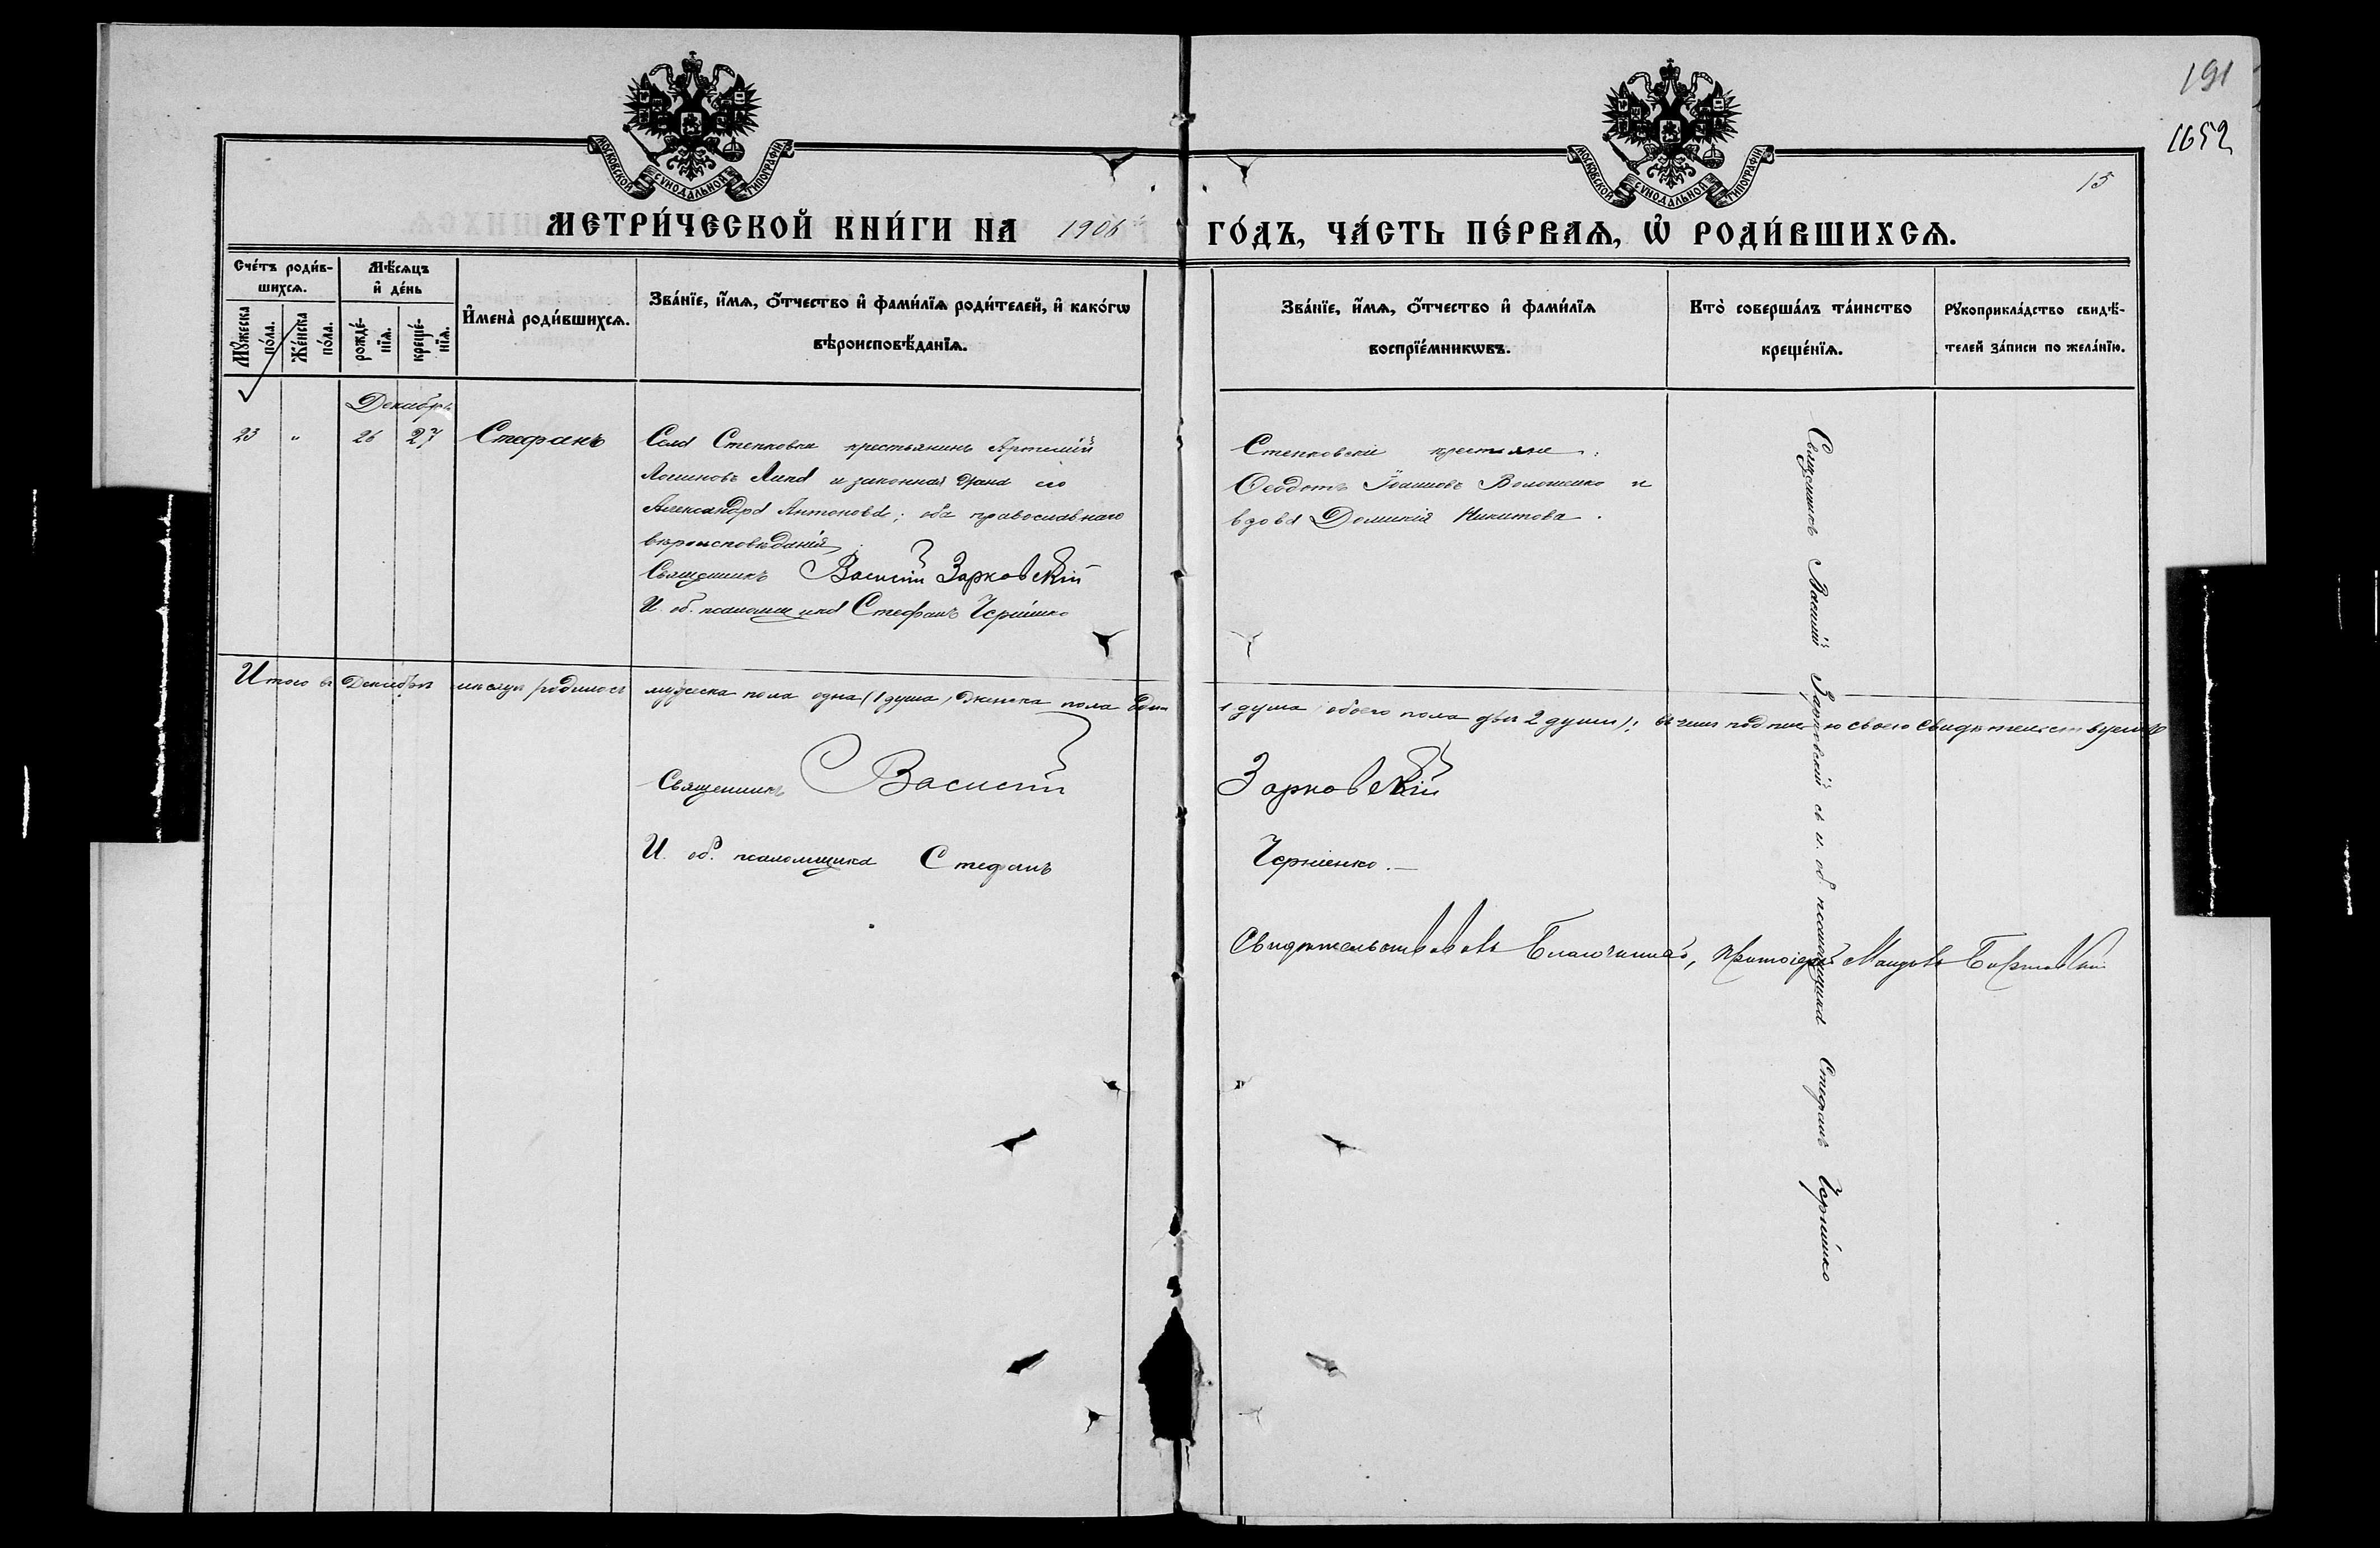 191
1652
15
МОСКОВСКОЙ СѴНОДАЛЬНОЙ ТИПОГРАФІИ
МОСКОВСКОЙ СѴНОДАЛЬНОЙ ТИПОГРАФІИ
МЕТРИ́ЧЕСКОЙ КНИ́ГИ НА 1906 ГО́ДЪ, ЧА́СТЬ ПЕ́РВАѦ, Ѡ҆ РОДИ́ВШИХСѦ.
Сче́тъ роди́в-
шихсѧ.
Мꙋ́жеска по́ла.
Же́нска по́ла.
Мѣ́сѧцъ
и҆ де́нь
рожде́-
нїѧ.
креще́-
нїѧ.
И҆мена̀ роди́вшихсѧ.
Зва́нїе, и҆́мѧ, ѻ҆́тчество и҆ фами́лїѧ роди́телей, и҆ како́гѡ
вѣроисповѣ́данїѧ.
Зва́нїе, и҆́мѧ, ѻ҆́тчество и҆ фами́лїѧ
воспрїе́мникѡвъ.
Кто̀ соверша́лъ та́инство
креще́нїѧ.
Рꙋкоприкла́дство свидѣ́-
телей за́писи по жела́нїю.
Декабрь
23 " 26 27 Стефанъ
Села Степковки крестьянинъ Артемій
Лина и законная жена его
Александра Антонова; оба православнаго
вѣроисповѣданія
Священникъ Василій Зарковскій
И. об. псаломщика Стефанъ Черніенко
Степковски крестьяне:
Ѳеодотъ Іоанновъ Волошенко и
вдова Домникія Никитова.
Священникъ Василій Зарковскій съ и. об. псаломщика Стефанъ Черніенко
Итого въ Декабрѣ мѣсяцѣ родилось мужеска пола одна (1 душа), женска пола одна
1 душа обоего пола двѣ 2 души); въ чемъ подписью своею свидѣтельствуемъ
Священникъ Василій Зарковскій
И. об. псаломщика Стефанъ Черніенко.
Свидѣтельствовалъ Благочинный, Протоіерей